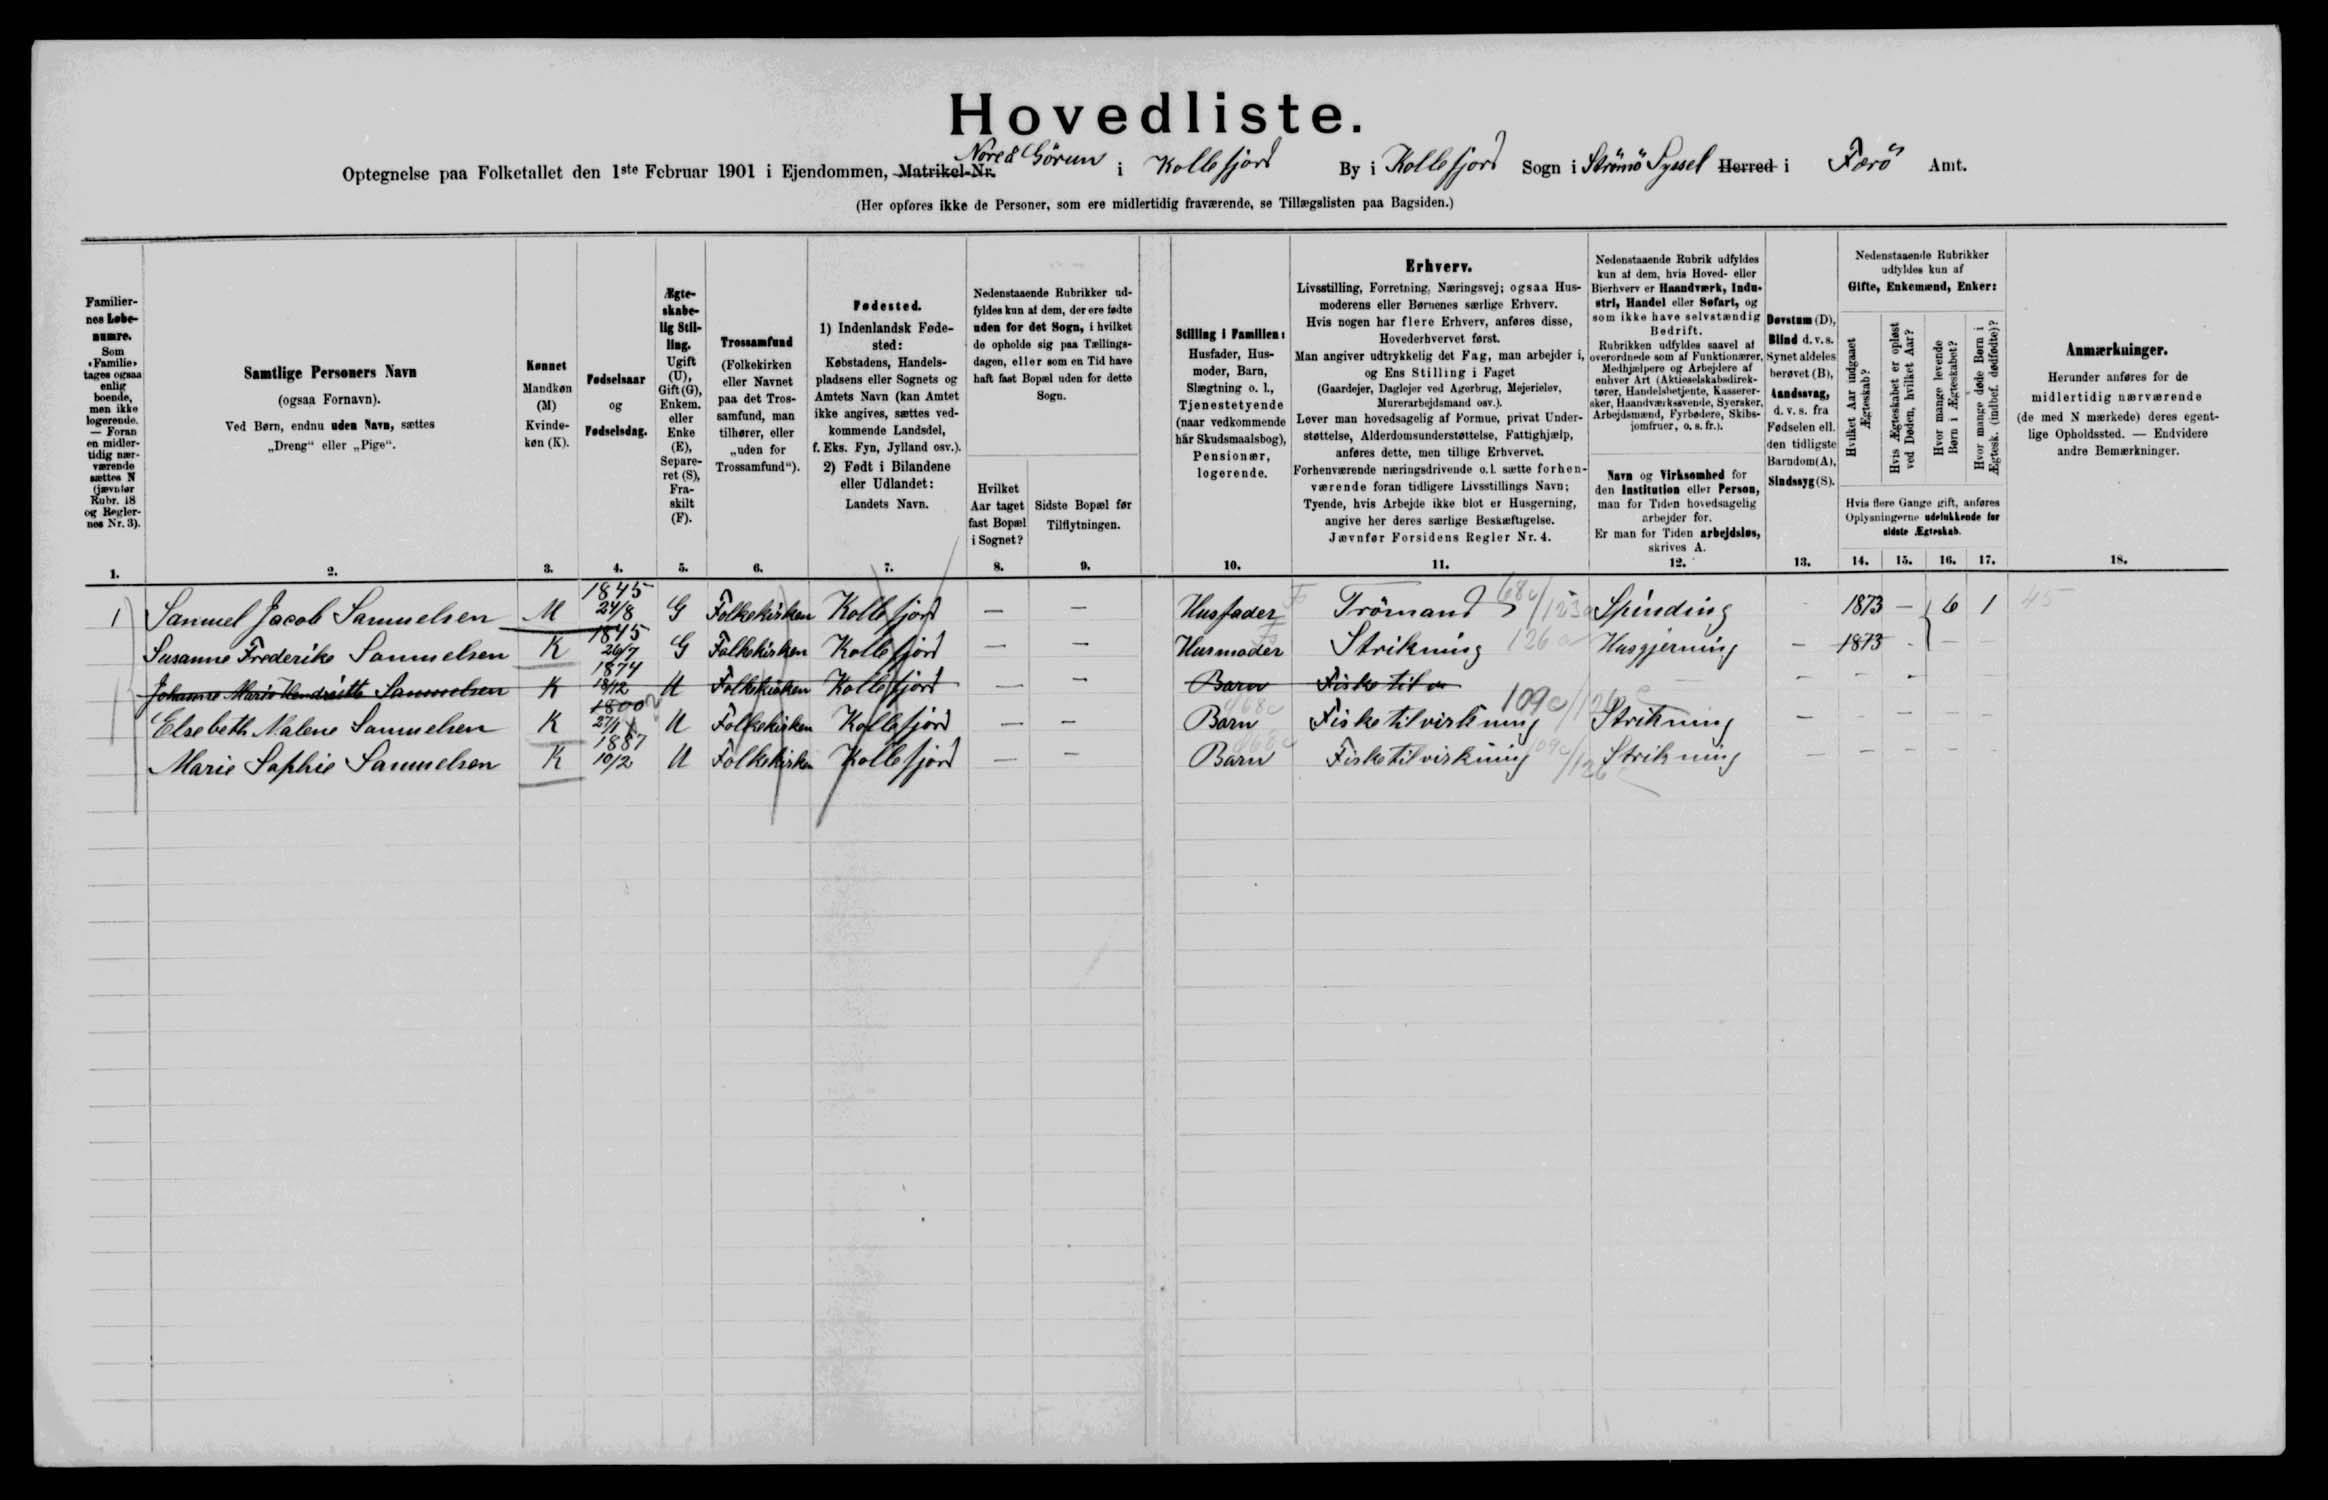 Hovedliste.
Optegnelse paa Folketallet den 1ste Februar 1901 i Ejendommen, Matrikel-Nr. Norea Görum i Kollefjord By i Kollefjord Sogn i Strömö Syssel Herred i Færö Amt.
(Her opføres ikke de Personer, som ere midlertidig fraværende, se Tillægslisten paa Bagsiden.)
Familier-
nes Løbe-
numre.
Som
»Familie»
tages ogsaa
enlig
boende,
men ikke
logerende.
— Foran
en midler-
tidig nær-
værende
sættes N
(jævnfør
Rubr. 18
og Regler-
nes Nr. 3).
Samtlige Personers Navn
(ogsaa Fornavn).
Ved Børn, endnu uden Navn, sættes
„Dreng“ eller „Pige“.
Kønnet
Mandkøn
(M)
Kvinde-
køn (K).
Fødselsaar
og
Fødselsdag.
Ægte-
skabe-
lig Stil-
ling.
Ugift
(U),
Gift (G),
Enkem.
eller
Enke
(E),
Separe-
ret (S),
Fra-
skilt
(F).
Trossamfund
(Folkekirken
eller Navnet
paa det Tros-
samfund, man
tilhører, eller
„uden for
Trossamfund“).
Fødested.
1) Indenlandsk Føde-
sted:
Købstadens, Handels-
pladsens eller Sognets og
Amtets Navn (kan Amtet
ikke angives, sættes ved-
kommende Landsdel,
f. Eks. Fyn, Jylland osv.).
2) Født i Bilandene
eller Udlandet:
Landets Navn.
Nedenstaaende Rubrikker ud-
fyldes kun af dem, der ere fødte
uden for det Sogn, i hvilket
de opholde sig paa Tællings-
dagen, eller som en Tid have
haft fast Bopæl uden for dette
Sogn.
Hvilket
Aar taget
fast Bopæl
i Sognet?
Sidste Bopæl før
Tilflytningen.
Stilling i Familien:
Husfader, Hus-
moder, Barn,
Slægtning o. l.,
Tjenestetyende
(naar vedkommende
har Skudsmaalsbog),
Pensionær,
logerende.
Erhverv.
Livsstilling, Forretning, Næringsvej; ogsaa Hus-
moderens eller Børnenes særlige Erhverv.
Hvis nogen har flere Erhverv, anføres disse,
Hovederhvervet først.
Man angiver udtrykkelig det Fag, man arbejder i,
og Ens Stilling i Faget
(Gaardejer, Daglejer ved Agerbrug, Mejerielev,
Murerarbejdsmand osv.).
Lever man hovedsagelig af Formue, privat Under-
støttelse, Alderdomsunderstøttelse, Fattighjælp,
anføres dette, men tillige Erhvervet.
Forhenværende næringsdrivende o.l. sætte forhen-
værende foran tidligere Livsstillings Navn;
Tyende, hvis Arbejde ikke blot er Husgerning,
angive her deres særlige Beskæftigelse.
Jævnfør Forsidens Regler Nr. 4.
Nedenstaaende Rubrik udfyldes
kun af dem, hvis Hoved- eller
Bierhverv er Haandværk, Indu-
stri, Handel eller Søfart, og
som ikke have selvstændig
Bedrift.
Rubrikken udfyldes saavel af
overordnede som af Funktionærer,
Medhjælpere og Arbejdere af
enhver Art (Aktieselskabsdirek-
tører, Handelsbetjente, Kasserer-
sker, Haandværkssvende, Syersker,
Arbejdsmænd, Fyrbødere, Skibs-
jomfruer, o. s. fr.).
Navn og Virksomhed for
den Institution eller Person,
man for Tiden hovedsagelig
arbejder for.
Er man for Tiden arbejdsløs,
skrives A.
Døvstum (D),
Blind d. v. s.
Synet aldeles
berøvet (B),
Aandssvag,
d. v. s. fra
Fødselen ell.
den tidligste
Barndom (A),
Sindssyg (S).
Nedenstaaende Rubrikker
udfyldes kun af
Gifte, Enkemænd, Enker:
Hvilket Aar indgaaet
Ægteskab?
Hvis Ægteskabet er opløst
ved Døden, hvilket Aar?
Hvor mange levende
Børn i Ægteskabet?
Hvor mange døde Børn i
Ægtesk. (indbef. dødfødte)?
Hvis flere Gange gift, anføres
Oplysningerne udelukkende for
sidste Ægteskab.
Anmærkninger.
Herunder anføres for de
midlertidig nærværende
(de med N mærkede) deres egent-
lige Opholdssted. — Endvidere
andre Bemærkninger.
1. 2. 3. 4. 5. 6. 7. 8. 9. 10. 11. 12. 13. 14. 15. 16. 17. 18.
1 Samuel Jacob Samuelsen M 1845 24/8 G Folkekirken Kollefjord — — Husfader Trömand 68c/123a Spinding 1873 — 6 1 45
Susanne Frederike Samuelsen K 1845 26/7 G Folkekirken Kollefjord — — Husmoder Strikning 126a Husgjerning — 1873 - — —
Johanne Marie Hendriette Samuelsen K 1874 18/12 U Folkekirken Kollefjord — — Barn Fisketilv — - - - -
Elsebeth Malene Samuelsen K 1800 27/1 U Folkekirken Kollefjord — — Barn Fisketilvirkning 109c/126c Strikning — - — — —
Marie Sophie Samuelsen K 1887 10/2 U Folkekirken Kollefjord — — Barn Fisketilvirkning 109c/126c Strikning — — — — —